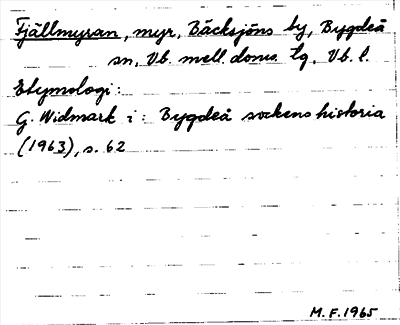 Fjällmyran, myr, Bäcksjöns by, Bygdeå
sn, Vb. mell. doms. tg, Vb. l.
Etymologi:
G. Widmark i: Bygdeå sockens historia
(1963), s. 62
M.F. 1965